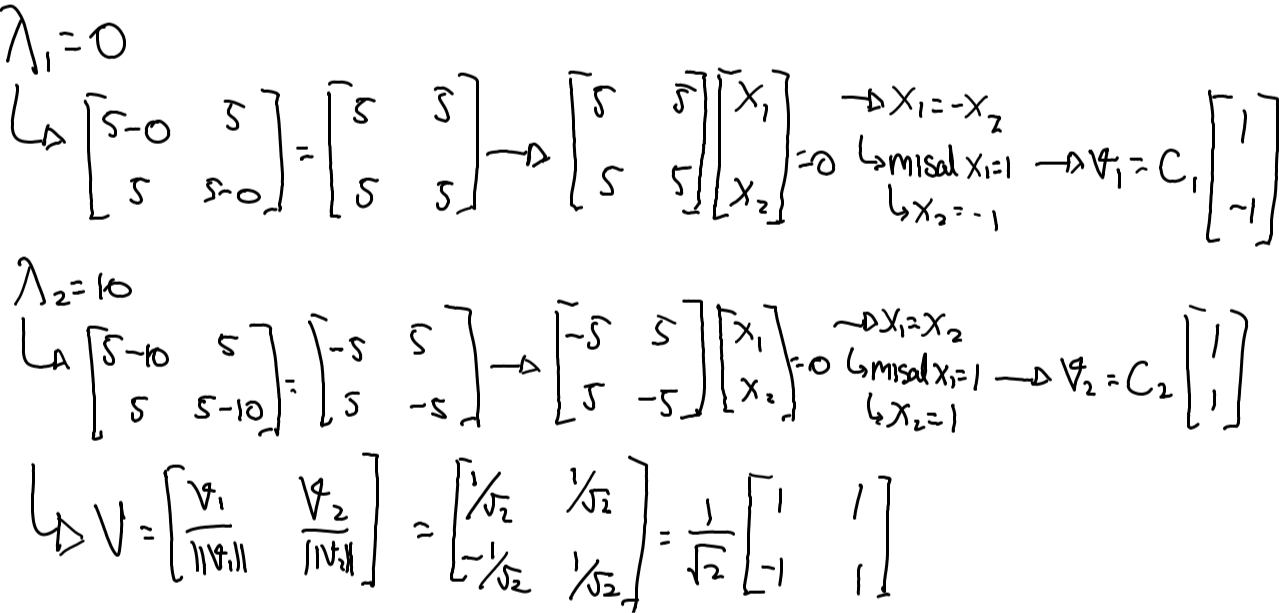 λ₁=0
↳ [5-0 5; 5 5-0] = [5 5; 5 5] → [5 5; 5 5][x₁; x₂]=0 → x₁=-x₂ ↳ misal x₁=1 ↳ x₂=-1 → v₁=C₁[1; -1]
λ₂=10
↳ [5-10 5; 5 5-10] = [-5 5; 5 -5] → [-5 5; 5 -5][x₁; x₂]=0 → x₁=x₂ ↳ misal x₁=1 ↳ x₂=1 → v₂=C₂[1; 1]
↳ V = [v₁/||v₁|| v₂/||v₂||] = [1/√2 1/√2; -1/√2 1/√2] = 1/√2 [1 1; -1 1]